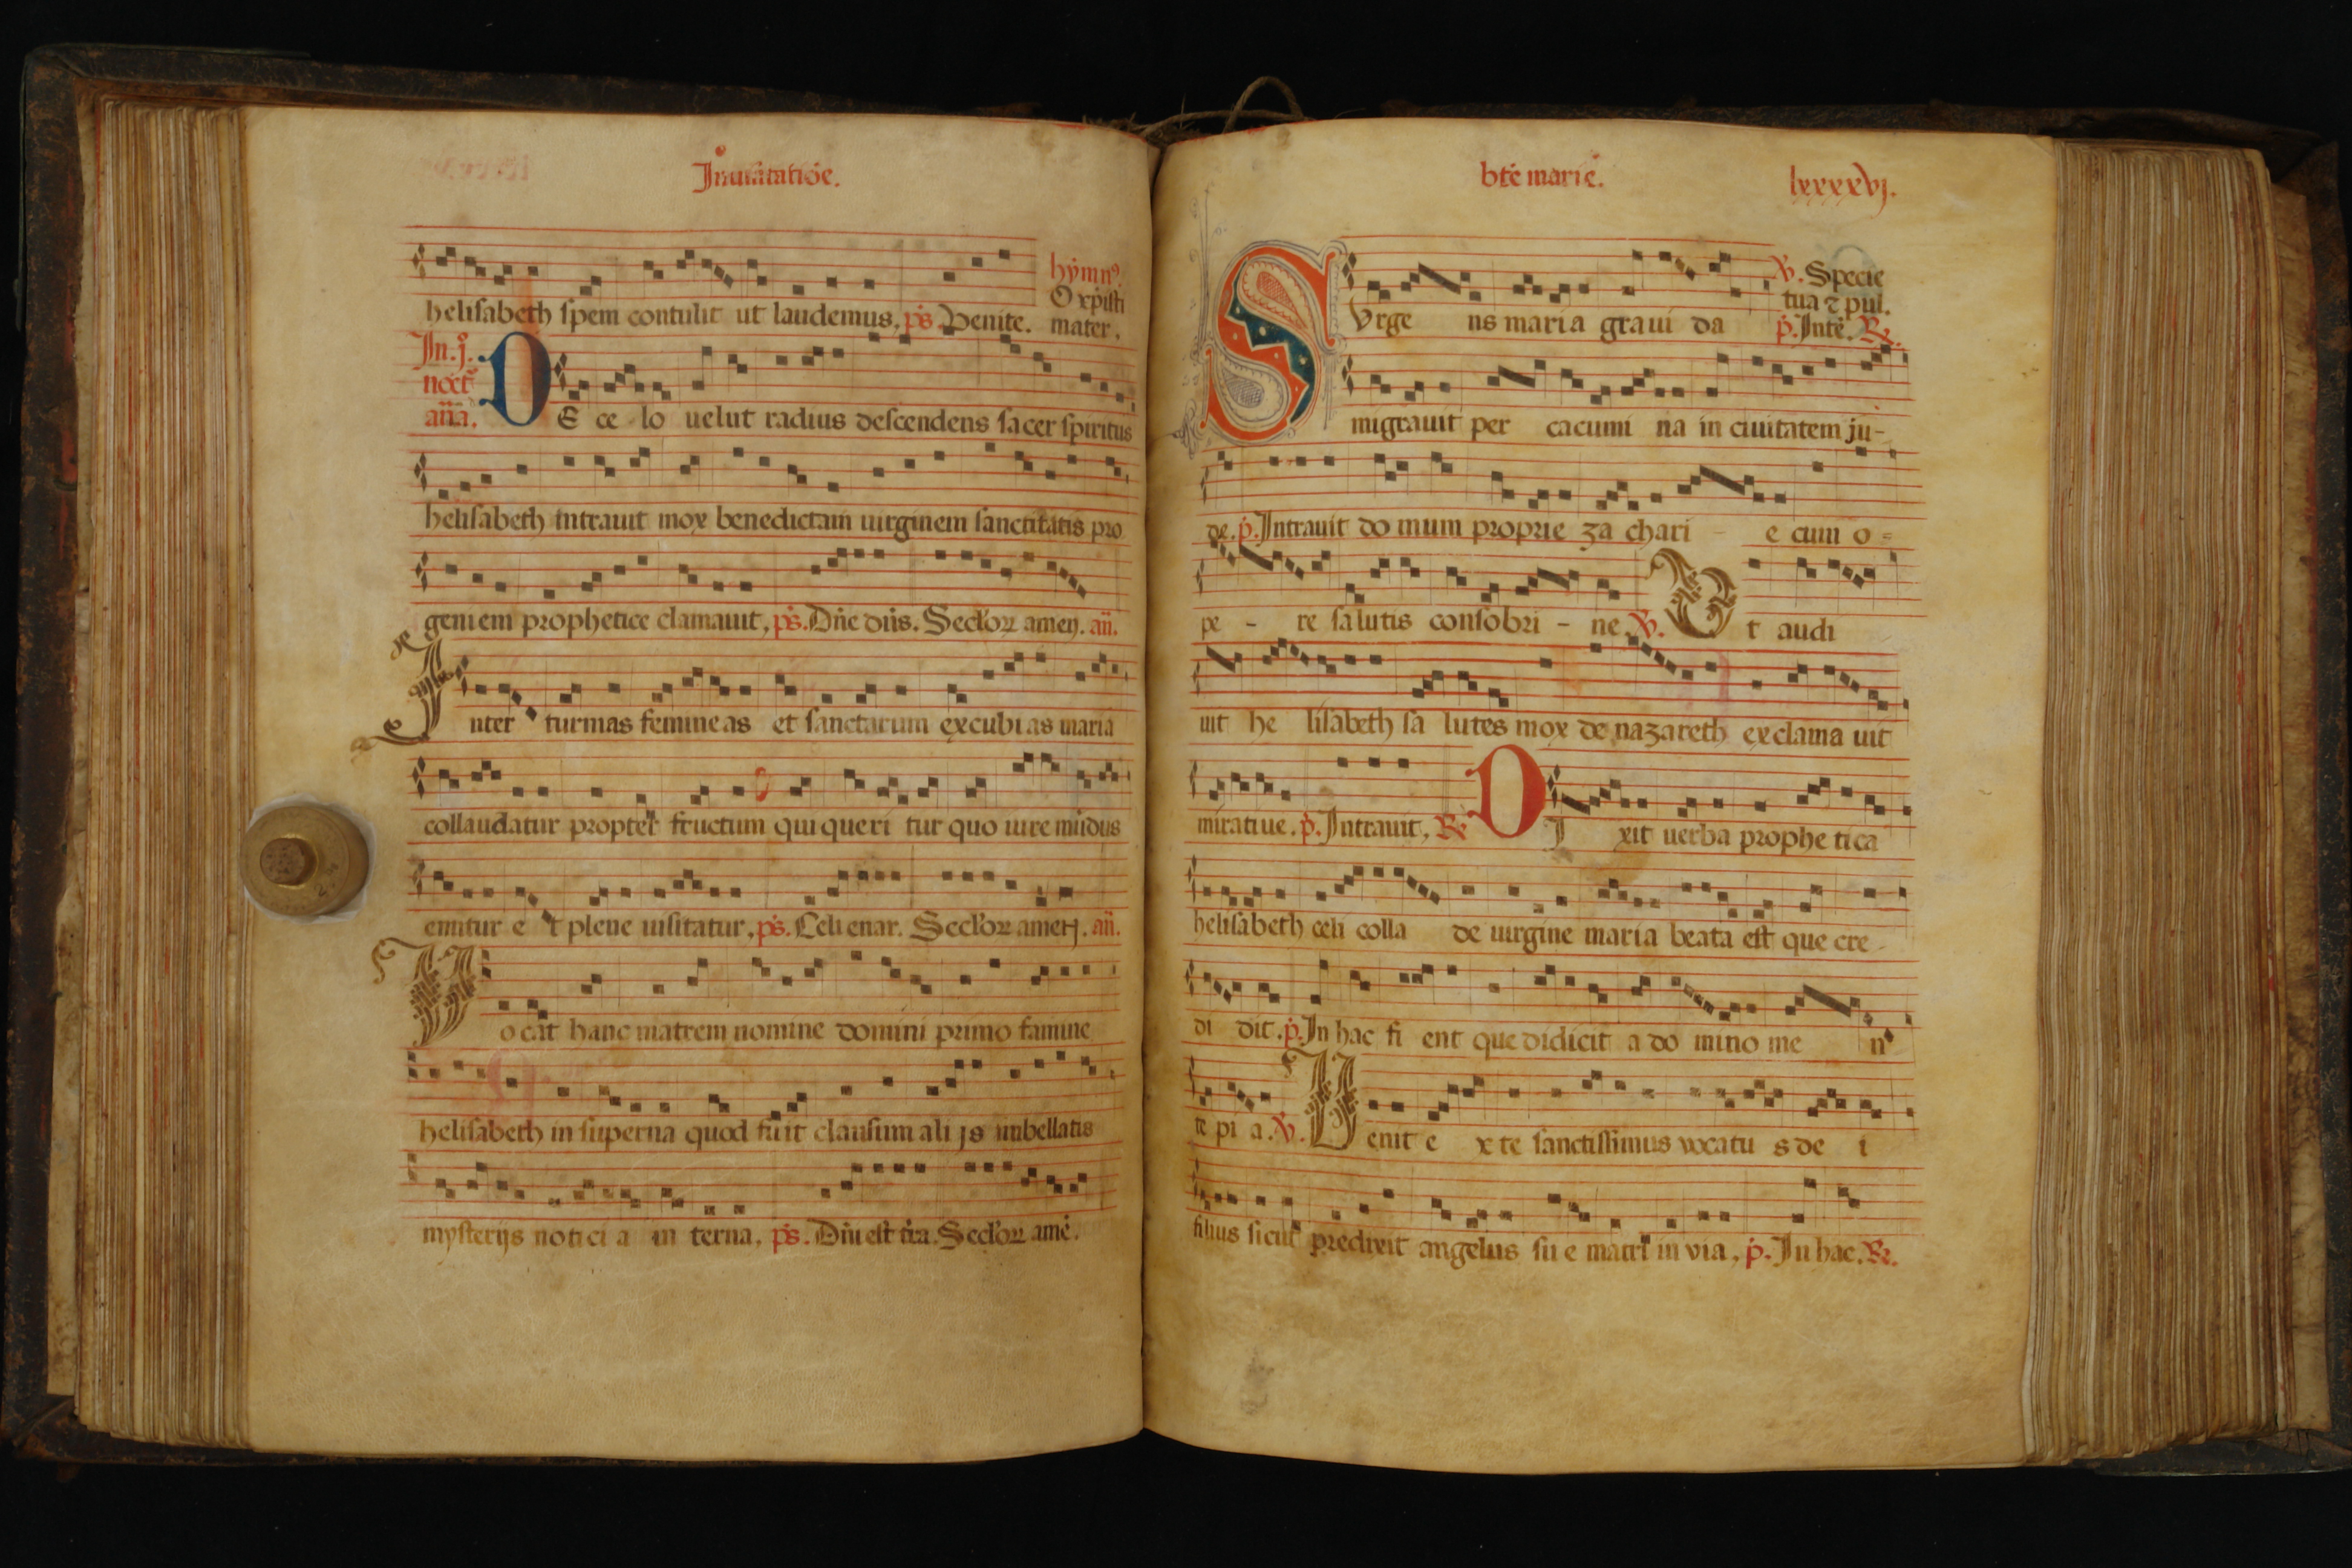 In uisitatiõe.
helisabeth spem contulit ut laudemus. p̄s. Venite.
hymnꝰ.
O xp̄isti
mater.
In .j.
noct̄
añã.
DE ce lo uelut radius descendens sacer spiritus
helisabeth intrauit mox benedictam uirginem sanctitatis pro
geniem prophetice clamauit. p̄s. Dñe dñs. Secl'oꝝ amen. añ.
Inter turmas femineas et sanctarum excubias maria
collaudatur propter fructum qui queri tur quo iure mũdus
emitur e t plene uisitatur. p̄s. Celi enar. Secl'oꝝ amen. añ.
Uocat hanc matrem nomine domini primo famine
helisabeth in superna quod fuit clausum ali js umbellatis
mysterijs noticia in terna. p̄s. Dñi est t̄ra. Secl'oꝝ amē.
bt̄e marie.
lxxxxvj.
SVrge ns maria graui da
℣. Specie
tua ⁊ pul.
p̄. Intē. ℟.
migrauit per cacumi na in ciuitatem ju-
de. p̄. Intrauit do mum proprie za chari - e cum o =
pe - re salutis consobri - ne. ℣. Ut audi
uit he lisabeth sa lutes mox de nazareth exclama uit
miratiue. p̄. Intrauit. ℟. DI xit uerba prophe tica
helisabeth celi colla de uirgine maria beata est que cre-
di dit. p̄. In hac fi ent que didicit a do mino me n
te pi a. ℣. Uenit e x te sanctissimus vocatu s de i
filius sicut predixit angelus su e matri in via. p̄. In hac. ℟.